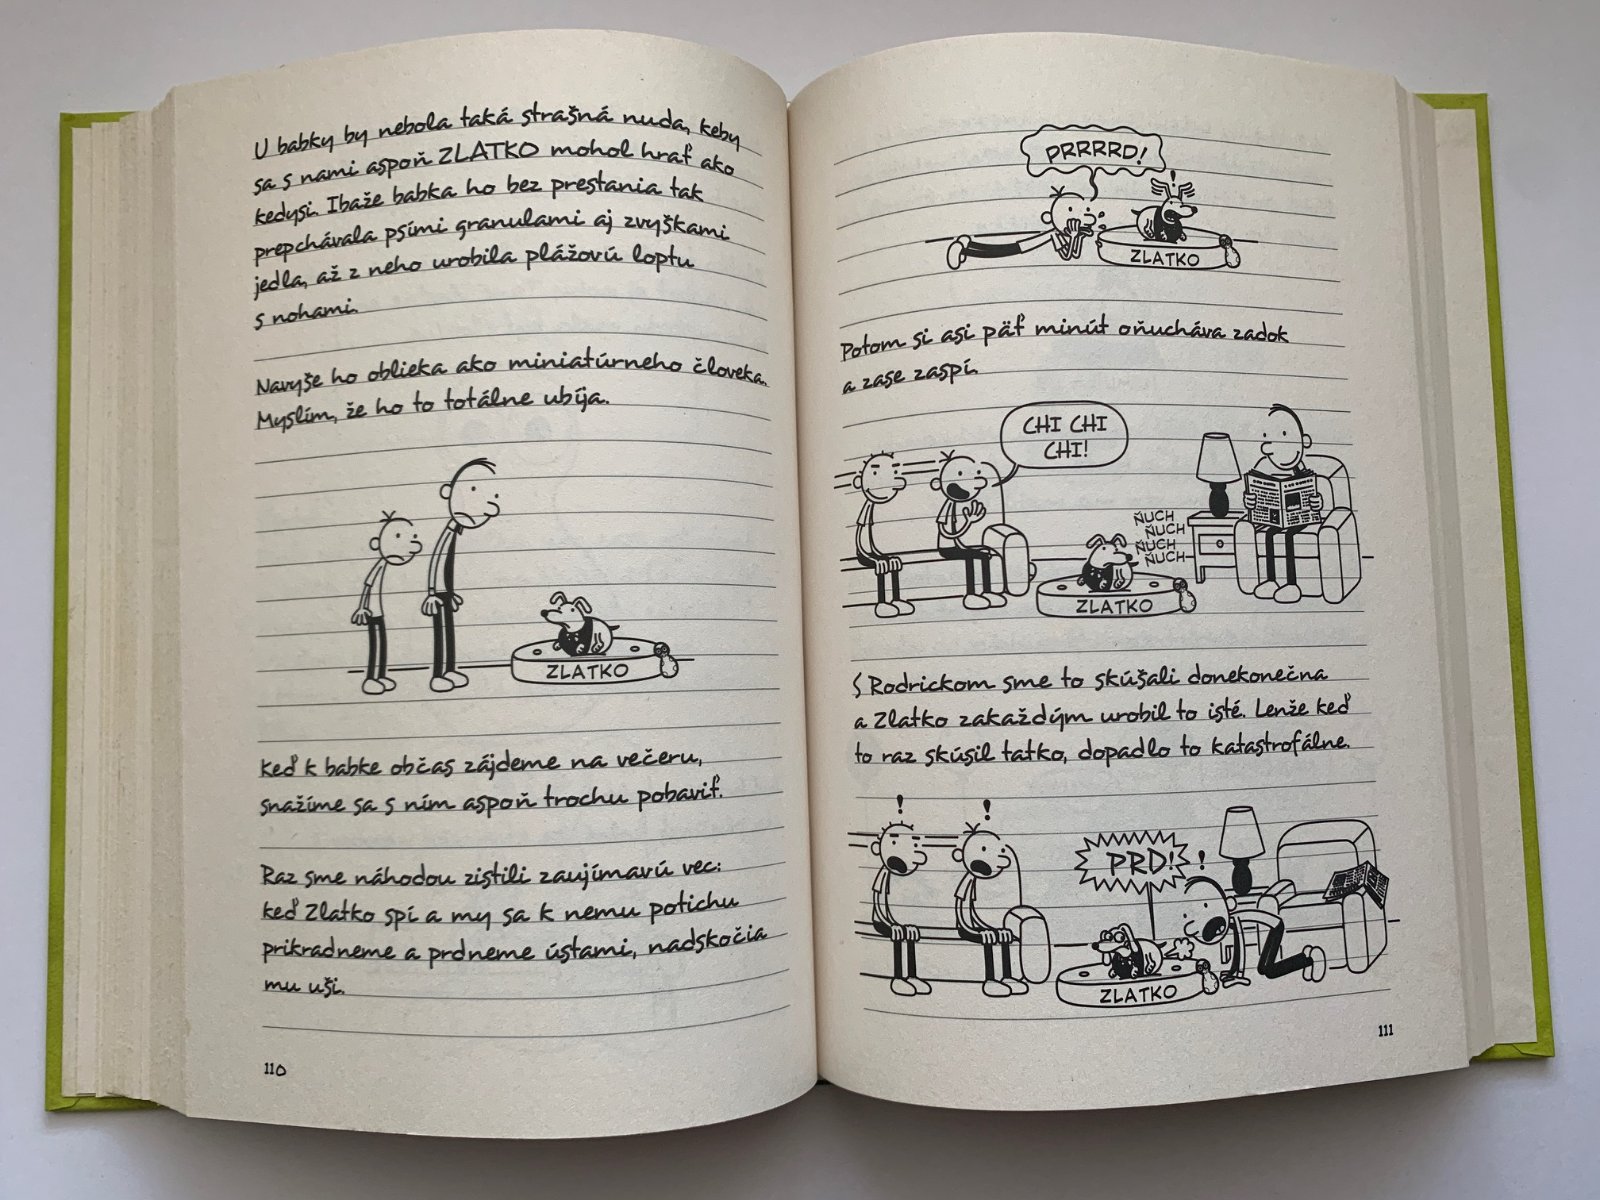 U babky by nebola taká strašná nuda, keby
sa s nami aspoň ZLATKO mohol hrať ako
kedysi. Ibaže babka ho bez prestania tak
prepchávala psími granulami aj zvyškami
jedla, až z neho urobila plážovú loptu
s nohami.
Navyše ho oblieka ako miniatúrneho človeka.
Myslím, že ho to totálne ubíja.
ZLATKO
Keď k babke občas zájdeme na večeru,
snažíme sa s ním aspoň trochu pobaviť.
Raz sme náhodou zistili zaujímavú vec:
keď Zlatko spí a my sa k nemu potichu
prikradneme a prdneme ústami, nadskočia
mu uši.
110
PRRRRD!
!
ZLATKO
Potom si asi päť minút oňucháva zadok
a zase zaspí.
CHI CHI
CHI!
ŇUCH
ŇUCH
ŇUCH
ŇUCH
ZLATKO
S Rodrickom sme to skúšali donekonečna
a Zlatko zakaždým urobil to isté. Lenže keď
to raz skúsil tatko, dopadlo to katastrofálne.
! !
PRD! !
ZLATKO
111